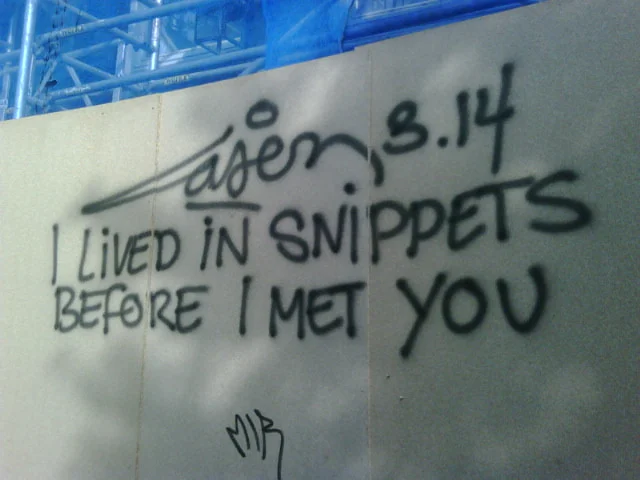 Lasen, 3.14
I LiVED iN SNiPPETS
BEFORE I MET YOU
MIR